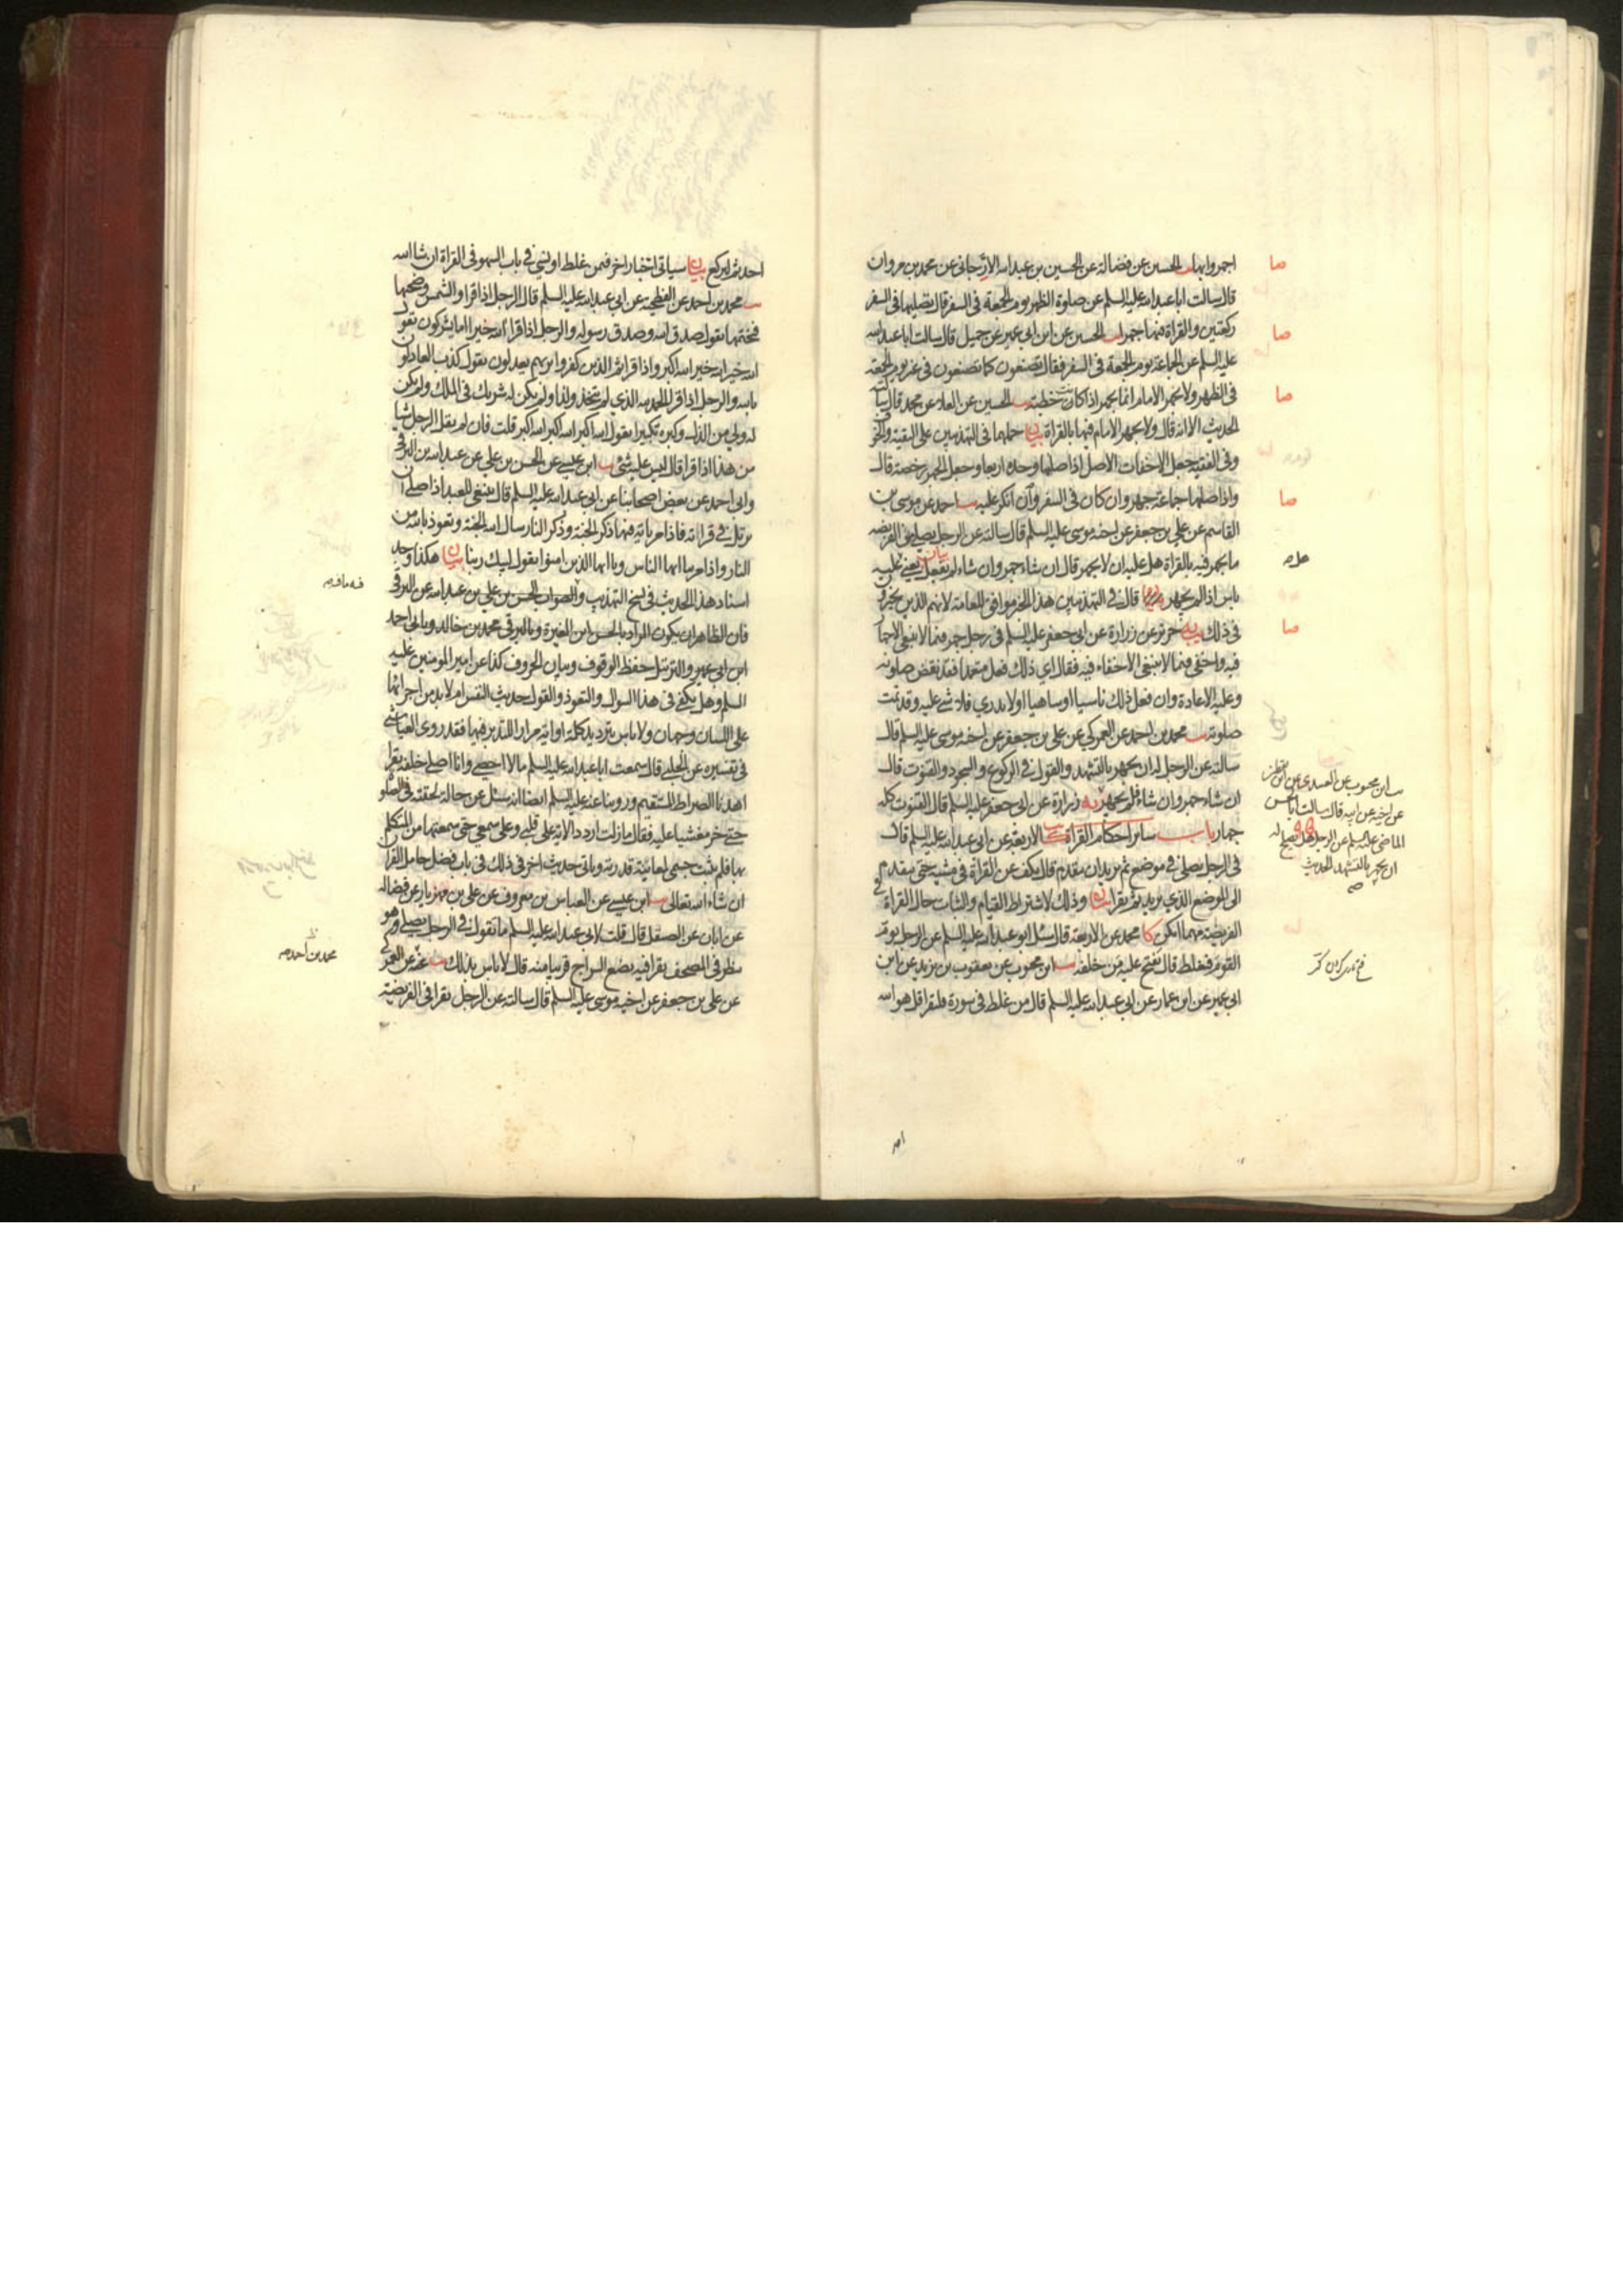 اجهروا بها يب الحسين عن فضالة عن الحسين بن عبدالله الارجاني عن محمد بن مروان
قال سالت ابا عبدالله عليه السلم عن صلوة الظهر يوم الجمعة في السفر قال تصليها في السفر
ركعتين والقراة فيها جهرا يب الحسين عن ابن ابي عمير عن جميل قال سالت ابا عبدالله
عليه السلم عن الجماعة يوم الجمعة في السفر فقال تصنعون كما تصنعون في غير يوم الجمعة
في الظهر ولا يجهر الامام انما يجهر اذا كانت خطبة يب الحسين عن العلا عن محمد قال سالته
الحديث الا انه قال ولا يجهر الامام فيها بالقراة بيان حملهما في التهذيبين على التقية والخوف
وفي الفقيه جعل الاخفات الاصل اذا صلها وحده اربعا وجعل الجهر رخصة قال
واذا صلها جماعة جهر وان كان في السفر وان انكر عليه يب احمد عن موسى بن
القاسم عن علي بن جعفر عن اخيه موسى عليه السلم قال سالته عن الرجل يصلي من الفريضة
ما يجهر فيه بالقراة هل عليه ان لا يجهر قال ان شاء جهر وان شاء لم يفعل يعني عليه
باس اذا لم يجهر بيان قال في التهذيبين هذا الخبر موافق للعامة لانهم الذين يخيرون
في ذلك يه حريز عن زرارة عن ابي جعفر عليه السلم في رجل جهر فيما لا ينبغي الاجهار
فيه واخفى فيما لا ينبغي الاخفاء فيه فقال اي ذلك فعل متعمدا فقد نقض صلوته
وعليه الاعادة وان فعل ذلك ناسيا او ساهيا او لا يدري فلا شي عليه وقد تمت
صلوته يب محمد بن احمد عن العمركي عن علي بن جعفر عن اخيه موسى عليه السلم قال
سالته عن الرجل له ان يجهر بالتشهد والقول في الركوع والسجود والقنوت قال
ان شاء جهر وان شاء لم يجهر يه زرارة عن ابي جعفر عليه السلم قال القنوت كله
جهار باب سائر احكام القراة كا الاربعة عن ابي عبدالله عليه السلم قال
في الرجل يصلي في موضع ثم يريد ان يتقدم قال يكف عن القراة في مشيه حتى يتقدم
الى الموضع الذي يريد ثم يقرا بيان وذلك لاشتراط القيام والثبات حال القراة في
الفريضة مهما امكن كا محمد عن الاربعة قال سئل ابو عبدالله عليه السلم عن الرجل يؤم
القوم فيغلط قال يفتح عليه من خلفه يب ابن محبوب عن يعقوب بن يزيد عن ابن
ابي عمير عن ابن عمار عن ابي عبدالله عليه السلم قال من غلط في سورة فليقرا قل هو الله
صا
صا
صا
صا
صا
عن اخيه عن ابيه قال سالت ابا الحسن
الماضي عليه السلم عن الرجل هل يصلح له
ان يجهر بالتشهد الحديث
احد ثم ليركع بيان سياتي اخبار اخر فيمن غلط او نسي في باب السهو في القراة ان شا الله
يب محمد بن احمد عن الفطحية عن ابي عبدالله عليه السلم قال الرجل اذا قرا والشمس وضحيها
فختمها يقول صدق الله وصدق رسوله والرجل اذا قرا الله خير اما يشركون يقول
الله خير الله خير الله اكبر واذا قرا ثم الذين كفروا بربهم يعدلون يقول كذب العادلون
بالله والرجل اذا قرا الحمد لله الذي لم يتخذ ولدا ولم يكن له شريك في الملك ولم يكن
له ولي من الذل وكبره تكبيرا يقول الله اكبر الله اكبر الله اكبر قلت فان لم يقل الرجل شيا
من هذا اذا قرا قال ليس عليه شئ يب ابن عيسى عن الحسن بن علي عن عبدالله بن البرقي
وابي احمد عن بعض اصحابنا عن ابي عبدالله عليه السلم قال ينبغي للعبد اذا صلى ان
يرتل في قراته فاذا مر باية فيها ذكر الجنة وذكر النار سال الله الجنة وتعوذ بالله من
النار واذا مر بيا ايها الناس ويا ايها الذين امنوا يقول لبيك ربنا بيان هكذا وجد
اسناد هذا الحديث في نسخ التهذيب والصواب الحسن بن علي بن عبدالله عن البرقي
فان الظاهر ان يكون المراد بالحسن ابن المغيرة وبالبرقي محمد بن خالد وبابي احمد
ابن ابي عمير والترتيل حفظ الوقوف وبيان الحروف كذا عن امير المومنين عليه
السلم وهل يكفي في هذا السوال والتعوذ والقول حديث النفس ام لا بد من اجرائها
على اللسان وجهان ولا باس بترديد كلمة او اية مرارا للتدبر فيها فقد روى العياشي
في تفسيره عن الحلبي قال سمعت ابا عبدالله عليه السلم ما لا احصي وانا اصلي خلفه يقرا
اهدنا الصراط المستقيم وروينا عنه عليه السلم ايضا انه سئل عن حالة لحقته في الصلوة
حتى خر مغشيا عليه فقال ما زلت اردد الاية على قلبي وعلى سمعي حتى سمعتها من المتكلم
بها فلم يثبت جسمي لمعاينة قدرته وياتي حديث اخر في ذلك في باب فضل حامل القران
ان شاء الله تعالى يب ابن عيسى عن العباس بن معروف عن علي بن مهزيار عن فضالة
عن ابان عن الصيقل قال قلت لابي عبدالله عليه السلم ما تقول في الرجل يصلي وهو
ينظر في المصحف يقرا فيه يضع السراج قريبا منه قال لا باس بذلك يب عنه عن العمركي
عن علي بن جعفر عن اخيه موسى عليه السلم قال سالته عن الرجل يقرا في الفريضة
محمد بن احمد